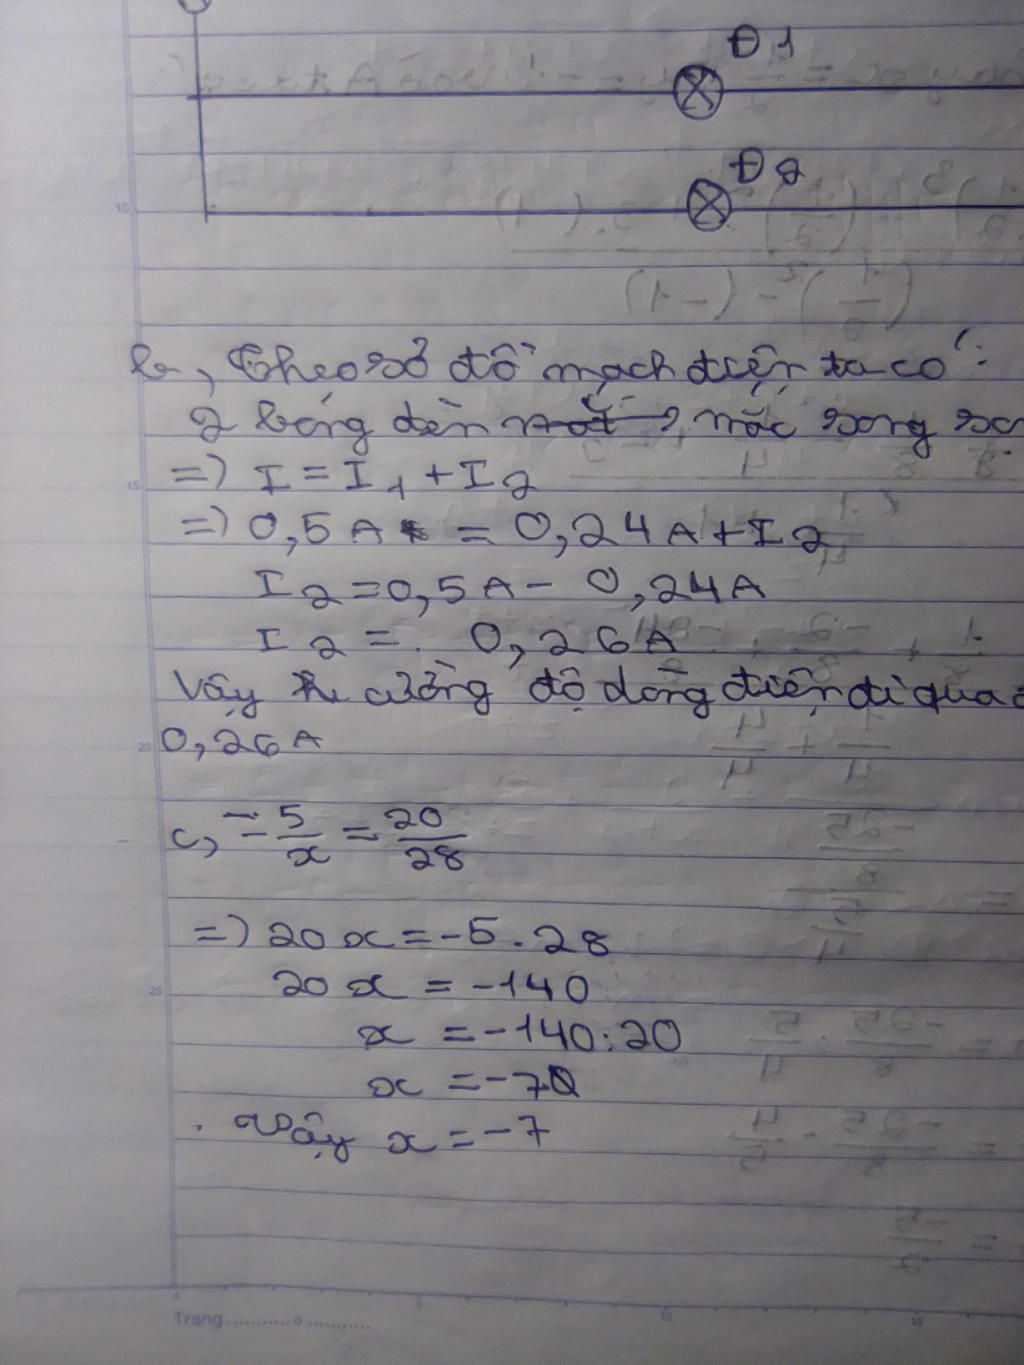 Đ1
Đ2
10
b, Theo sơ đồ mạch điện ta có:
2 bóng đèn mắc song
15
=) I = I1 + I2
=) 0,5A = 0,24A + I2
I2 = 0,5A - 0,24A
I2 = 0,26A
Vậy cường độ dòng điện đi qua
20
0,26A
c, -5/x = 20/28
=) 20x = -5.28
25
20x = -140
x = -140:20
x = -7
. Vậy x = -7
0 5 10 15
Trang